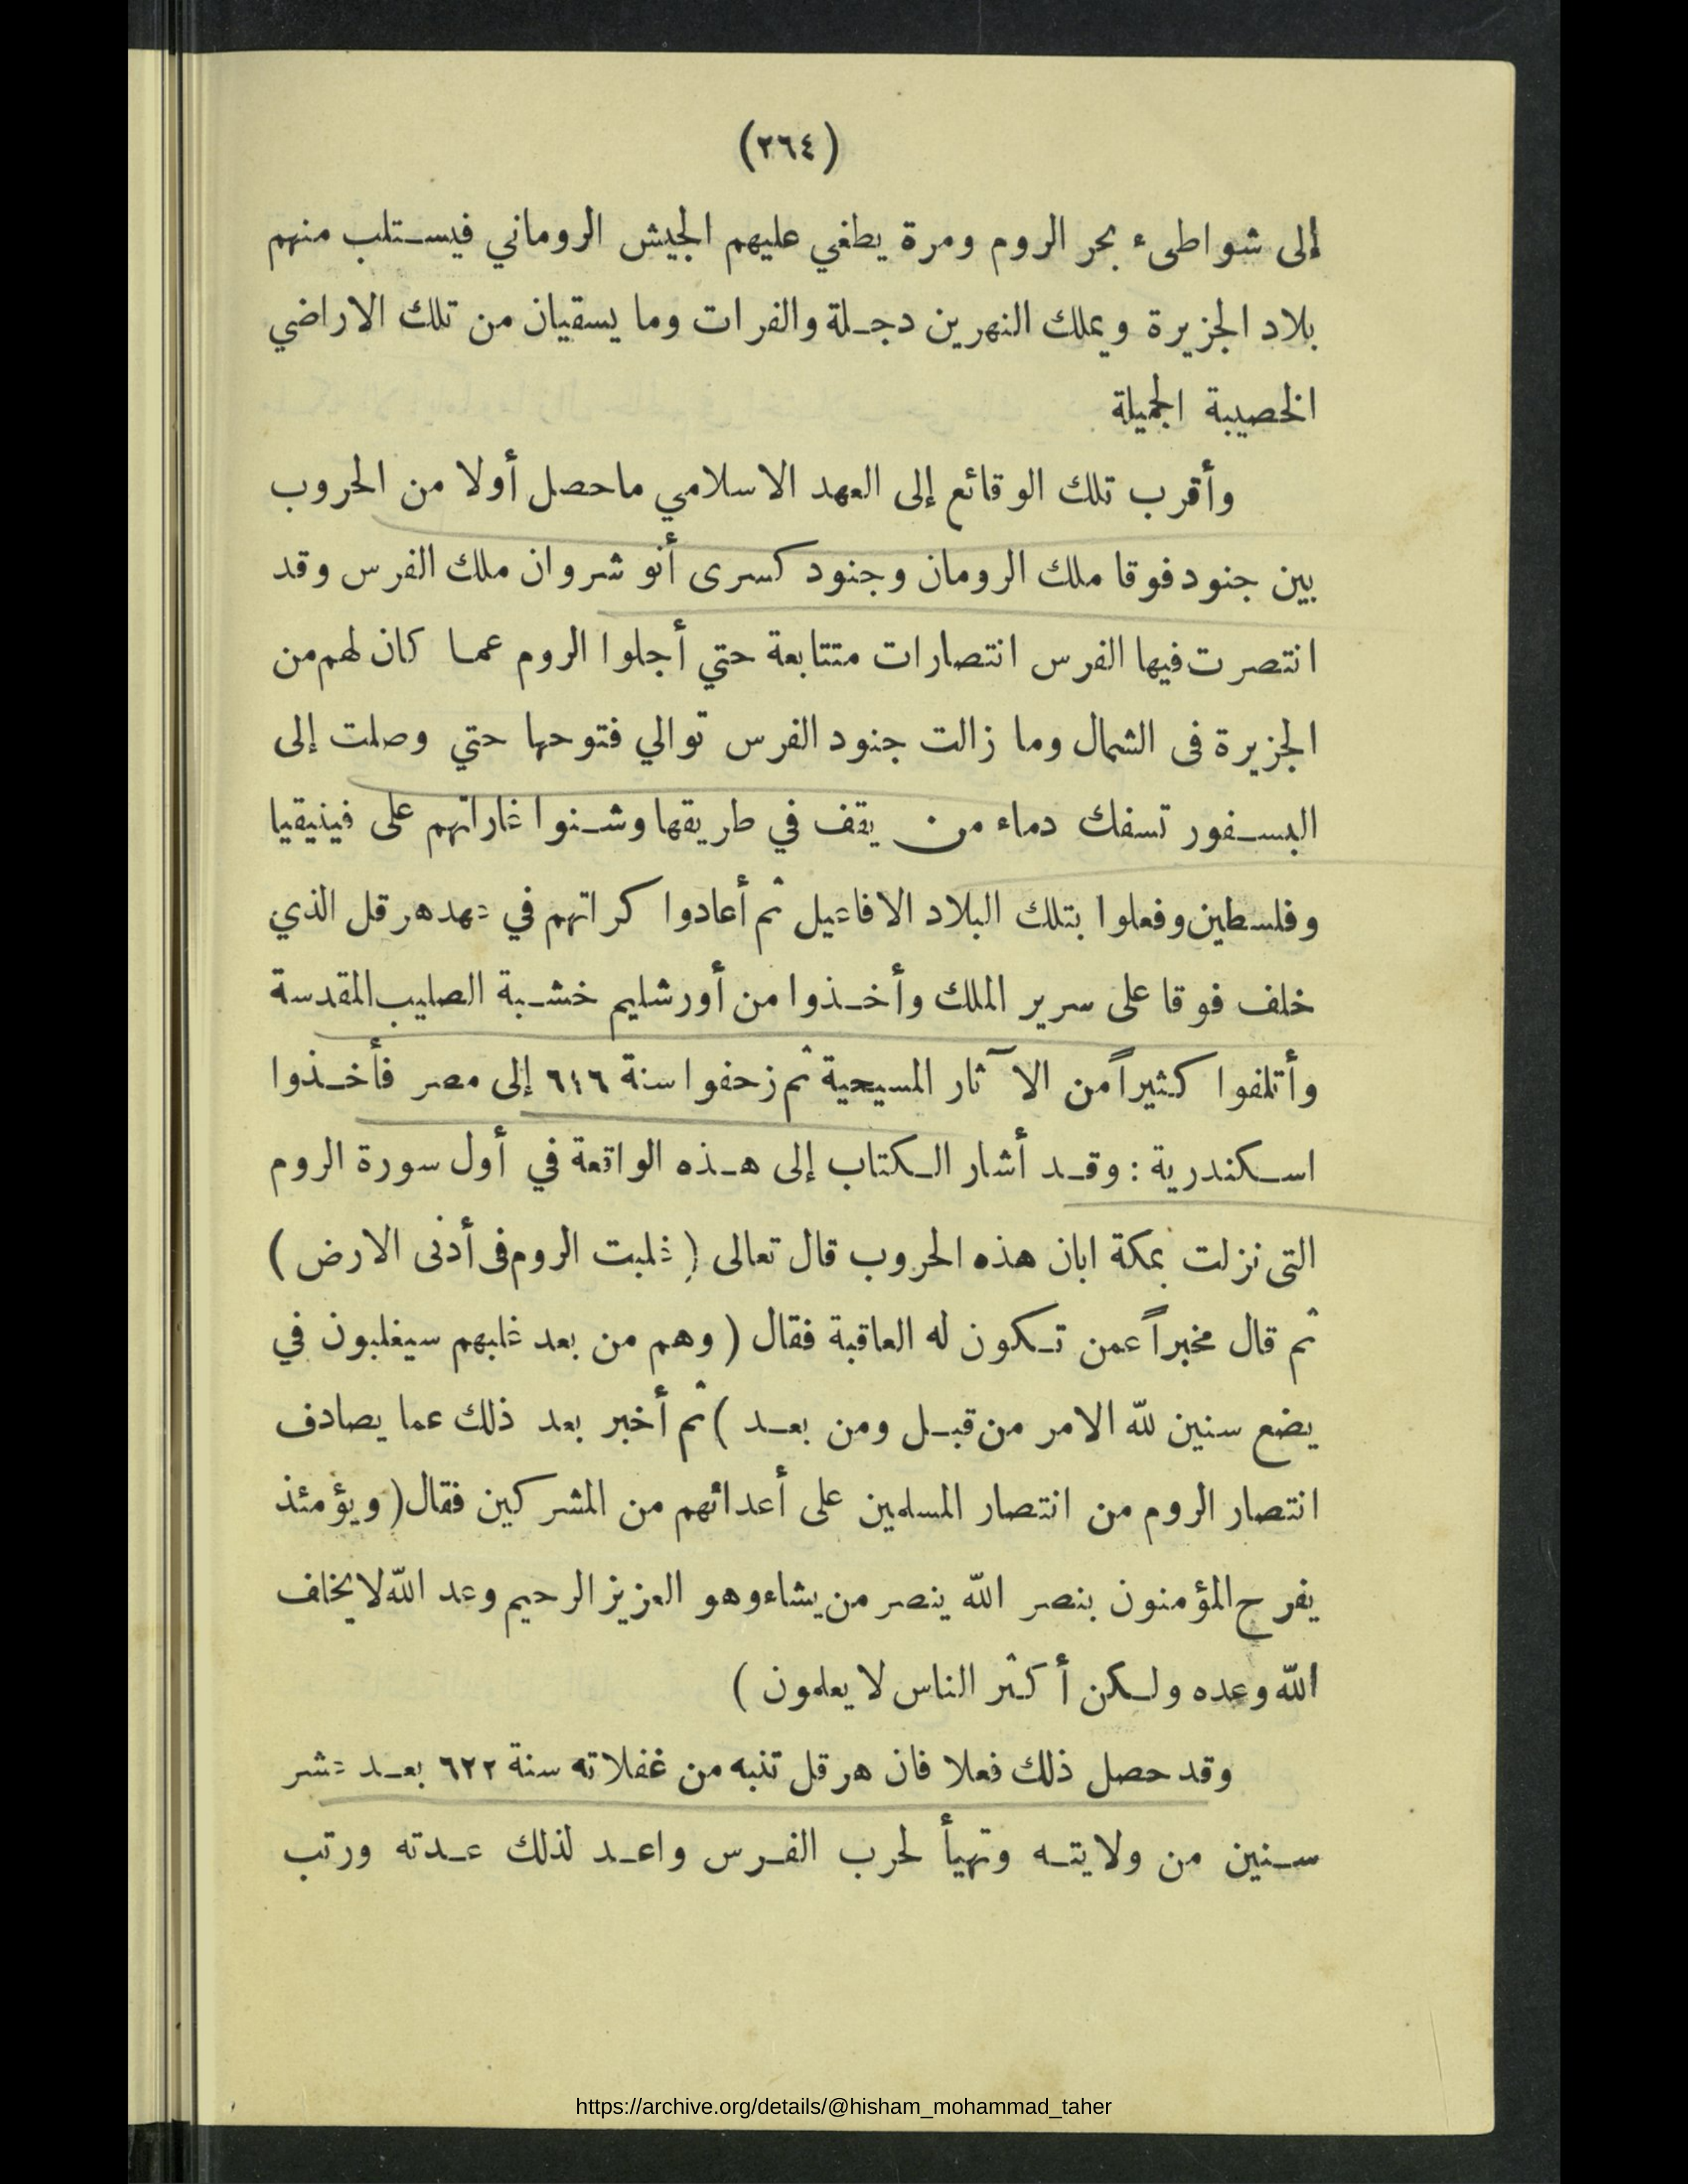 (٢٦٤)
إلى شواطىء بحر الروم ومرة يطغي عليهم الجيش الروماني فيستلب منهم
بلاد الجزيرة ويملك النهرين دجلة والفرات وما يسقيان من تلك الاراضي
الخصيبة الجميلة
وأقرب تلك الوقائع إلى العهد الاسلامي ماحصل أولا من الحروب
بين جنود فوقا ملك الرومان وجنود كسرى أنو شروان ملك الفرس وقد
انتصرت فيها الفرس انتصارات متتابعة حتي أجلوا الروم عما كان لهم من
الجزيرة فى الشمال وما زالت جنود الفرس توالي فتوحها حتي وصلت إلى
البسفور تسفك دماء من يقف في طريقها وشنوا غاراتهم على فينيقيا
وفلسطين وفعلوا بتلك البلاد الافاعيل ثم أعادوا كراتهم في عهد هرقل الذي
خلف فوقا على سرير الملك وأخذوا من أورشليم خشبة الصليب المقدسة
وأتلفوا كثيراً من الآثار المسيحية ثم زحفوا سنة ٦١٦ إلى مصر فأخذوا
اسكندرية : وقد أشار الكتاب إلى هذه الواقعة في أول سورة الروم
التى نزلت بمكة ابان هذه الحروب قال تعالى ( غلبت الروم فى أدنى الارض )
ثم قال مخبراً عمن تكون له العاقبة فقال ( وهم من بعد غلبهم سيغلبون في
بضع سنين لله الامر من قبل ومن بعد ) ثم أخبر بعد ذلك عما يصادف
انتصار الروم من انتصار المسلمين على أعدائهم من المشركين فقال ( ويؤمئذ
يفرح المؤمنون بنصر الله ينصر من يشاء وهو العزيز الرحيم وعد الله لا يخلف
الله وعده ولكن أكثر الناس لا يعلمون )
وقد حصل ذلك فعلا فان هرقل تنبه من غفلاته سنة ٦٢٢ بعد عشر
سنين من ولايته وتهيأ لحرب الفرس واعد لذلك عدته ورتب
https://archive.org/details/@hisham_mohammad_taher